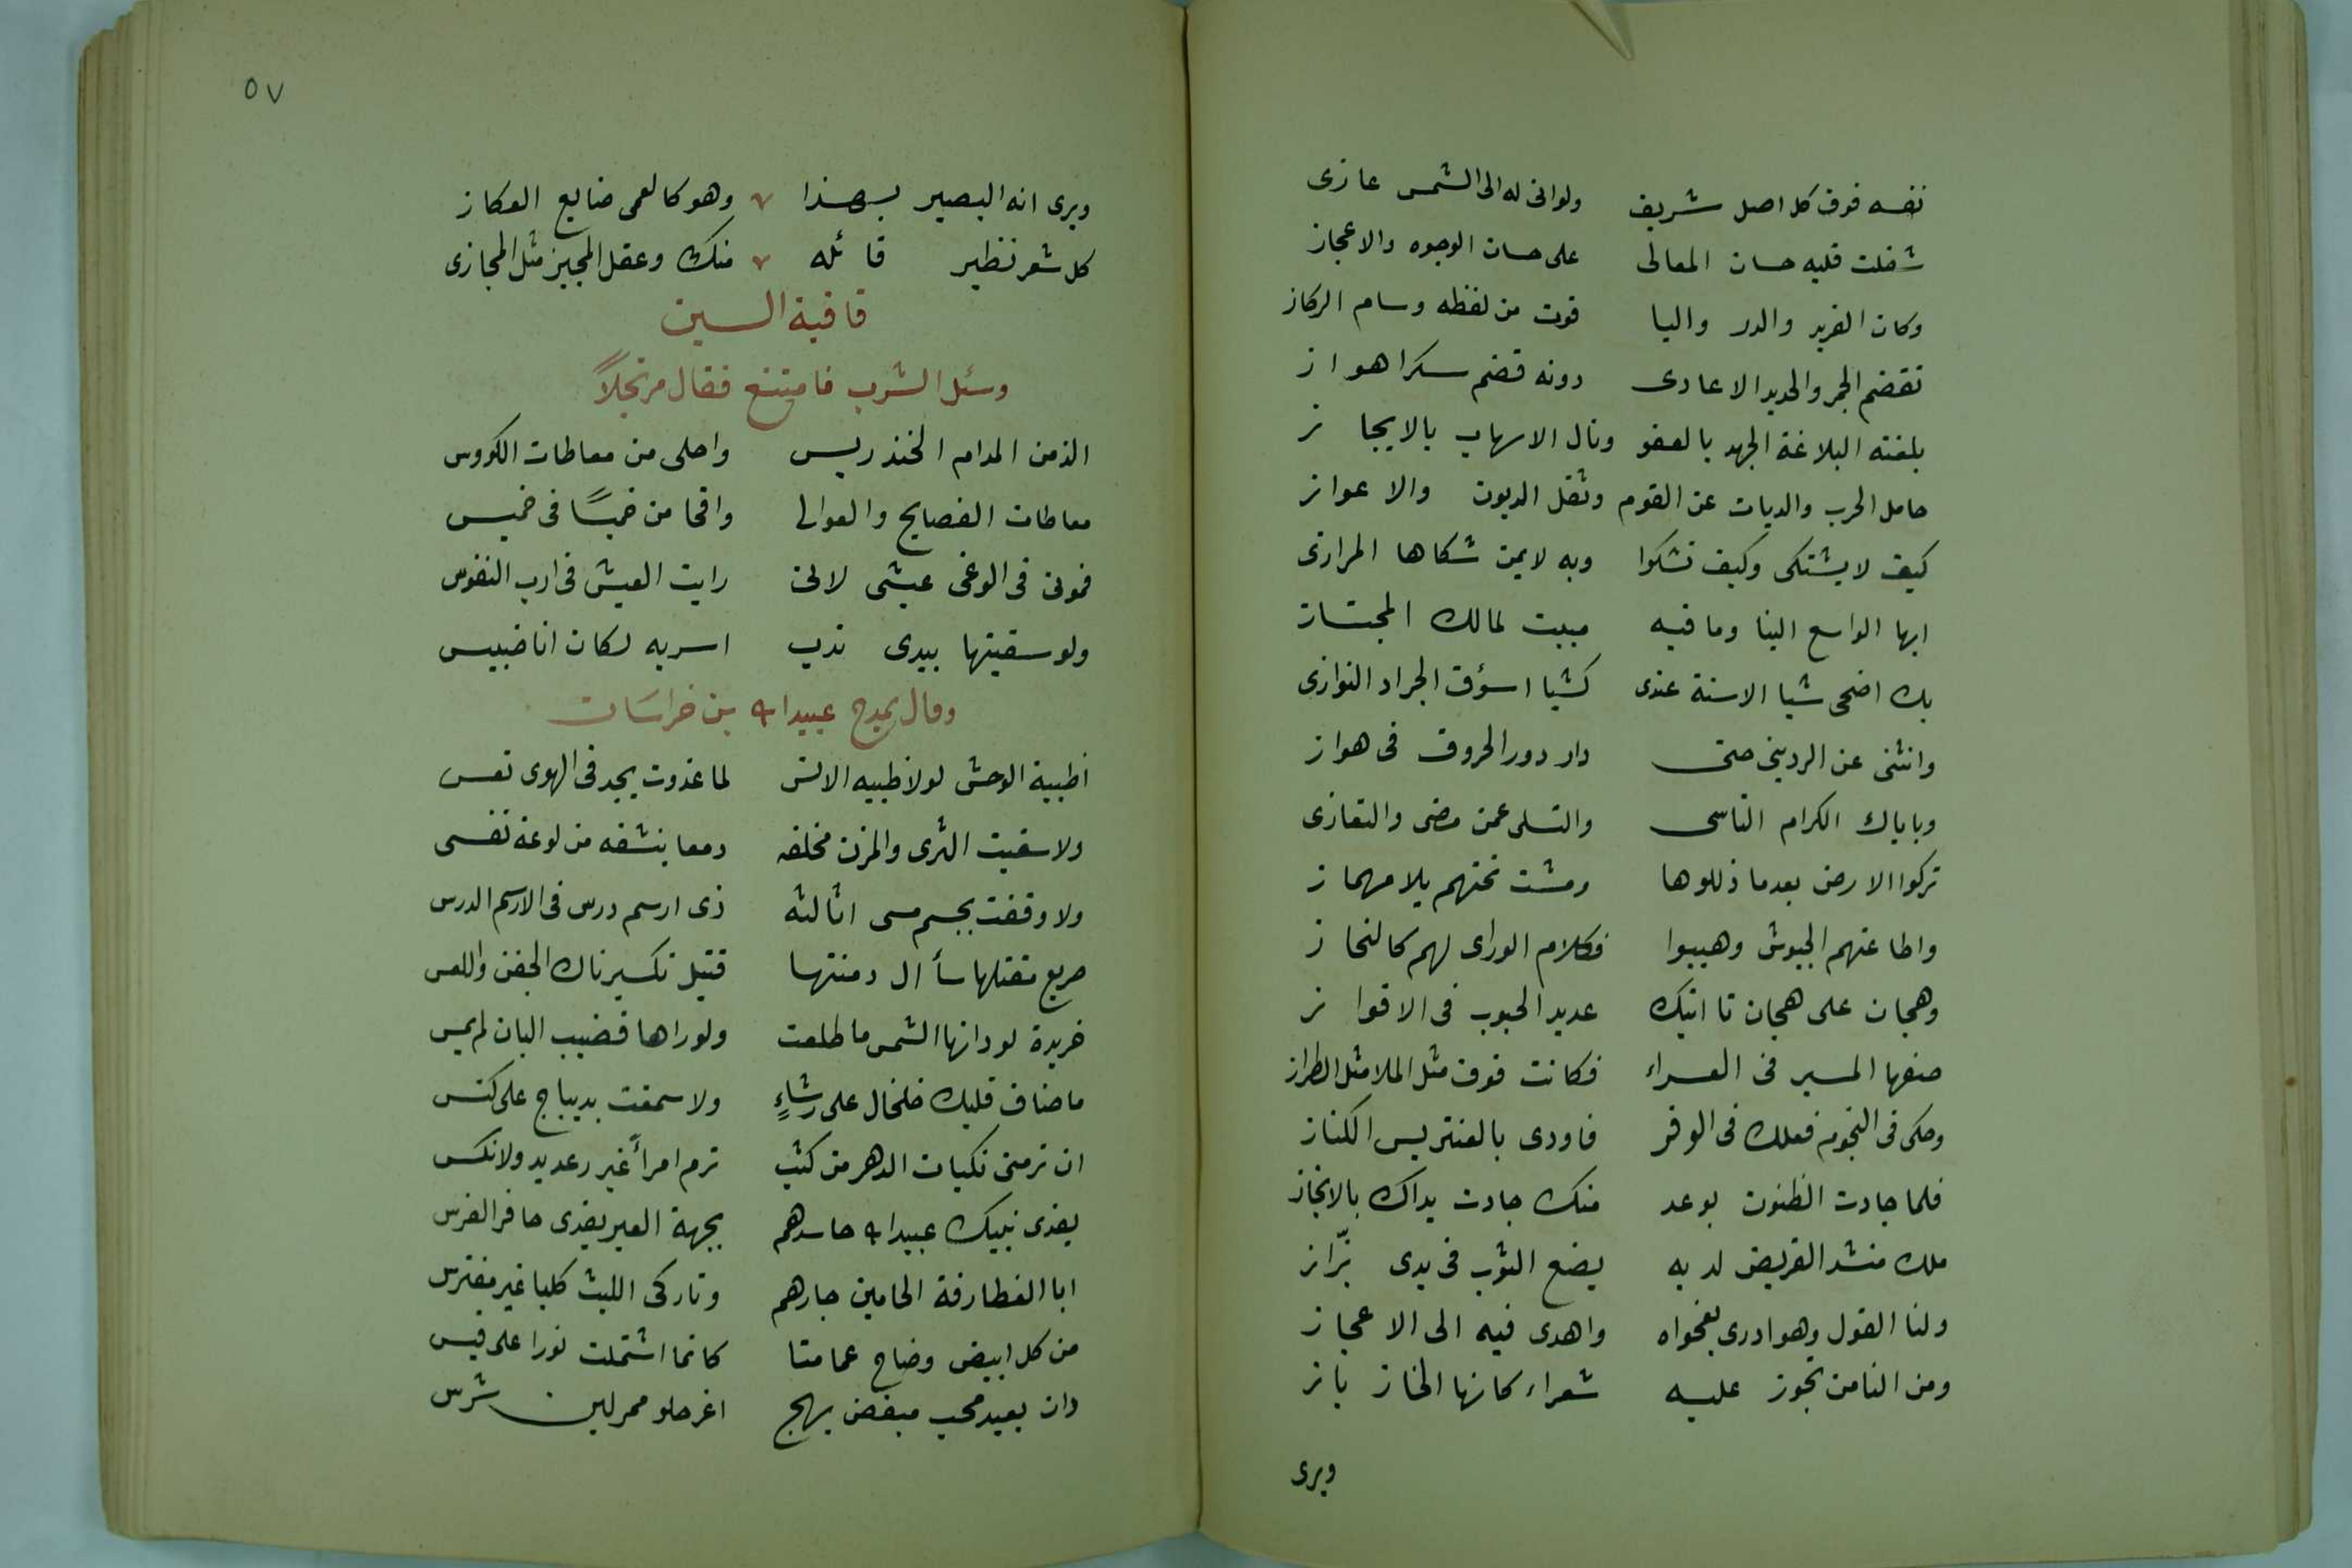 نفسه فوق كل اصل شريف ولوانى له الى الشمس عازى
شغلت قلبه حسان المعالى على حسان الوجوه والاعجاز
وكان الفريد والدر واليا قوت من لفظه وسام الركاز
تقضم الجمر والحديد الاعادى دونه قضم سكرا هواز
بلغته البلاغة الجهد بالعفو ونال الاسهاب بالايجاز
حامل الحرب والديات عن القوم وثقل الديون والاعواز
كيف لا يشتكى وكيف تشكوا وبه لا بمن شكاها المرازى
ايها الواسع الفنا وما فيه مبيت لمالك المجتاز
بك اضحى شبا الاسنة عندى كشبا اسؤق الجراد النوازى
وانثنى عن الردينى حتى دار دور الحروف فى هواز
وباباك الكرام التاسى والتسلى عمن مضى والتعازى
تركوا الارض بعدما ذللوها ومشت تحتهم بلا مهماز
واطاعتهم الجيوش وهيبوا فكلام الوراى لهم كالنحاز
وهجان على هجان تااتيك عديد الحبوب فى الاقواز
صفها المسير فى العراء فكانت فوق مثل الملا مثل الطراز
وحكى فى النجوم فعلك فى الوفر فاودى بالعنتريس الكناز
فلما جادت الظنون بوعد منك جادت يداك بالانجاز
ملك منشد القريض لديه يضع الثوب فى يدى بزّاز
ولنا القول وهو ادرى بفحواه واهدى فيه الى الاعجاز
ومن النا من تجوز عليه شعراء كانها الخاز باز
ويرى
٥٧
ويرى انه البصير بهذا وهو كالعمى ضايع العكاز
كل شعر نظير قائله منك وعقل المجيز مثل المجازى
قافية السين
وسئل الشرب فامتنع فقال مرتجلاً
الذ من المدام الخندريس واحلى من معاطات الكووس
معاطات الفصايح والعوالى واقحا من خميسًا فى خميس
فموتى فى الوغى عيشى لانى رايت العيش فى ارب النفوس
ولو سقيتها بيدى ندب اسر به لكان اناضبيس
وقال يمدح عبيد الله بن خراسَان
اظبية الوحش لولا ظبيه الانس لما غذوت بجد فى الهوى تعس
ولا سقيت الثرى والمزن مخلفه دمعا ينشفه من لوعة نفسى
ولا وقفت بجسم مسى اثالثه ذى ارسم درس فى الارسم الدرس
صريع مقتلها سأال دمنتها قتيل تكسير ناك الجفن واللعس
خريدة لو دانها الشمس ما طلعت ولوراها قضيب البان لم يمس
ما ضاق قلبك خلخال على رشاءٍ ولا سمعت بديباج على كنس
ان ترمنى نكبات الدهر من كثب ترم امرأً غير رعديد ولا نكس
يفدى بنيك عبيد الله حاسدهم بجبهة العير يفدى حافر الفرس
ابا الغطارفة الحامين جارهم وتاركى الليث كلبا غير مفترس
من كل ابيض وضاح عمامتا كانما اشتملت نورا على قبس
دان بعيد محب مبغض بهج اغر حلو ممر لين شرس